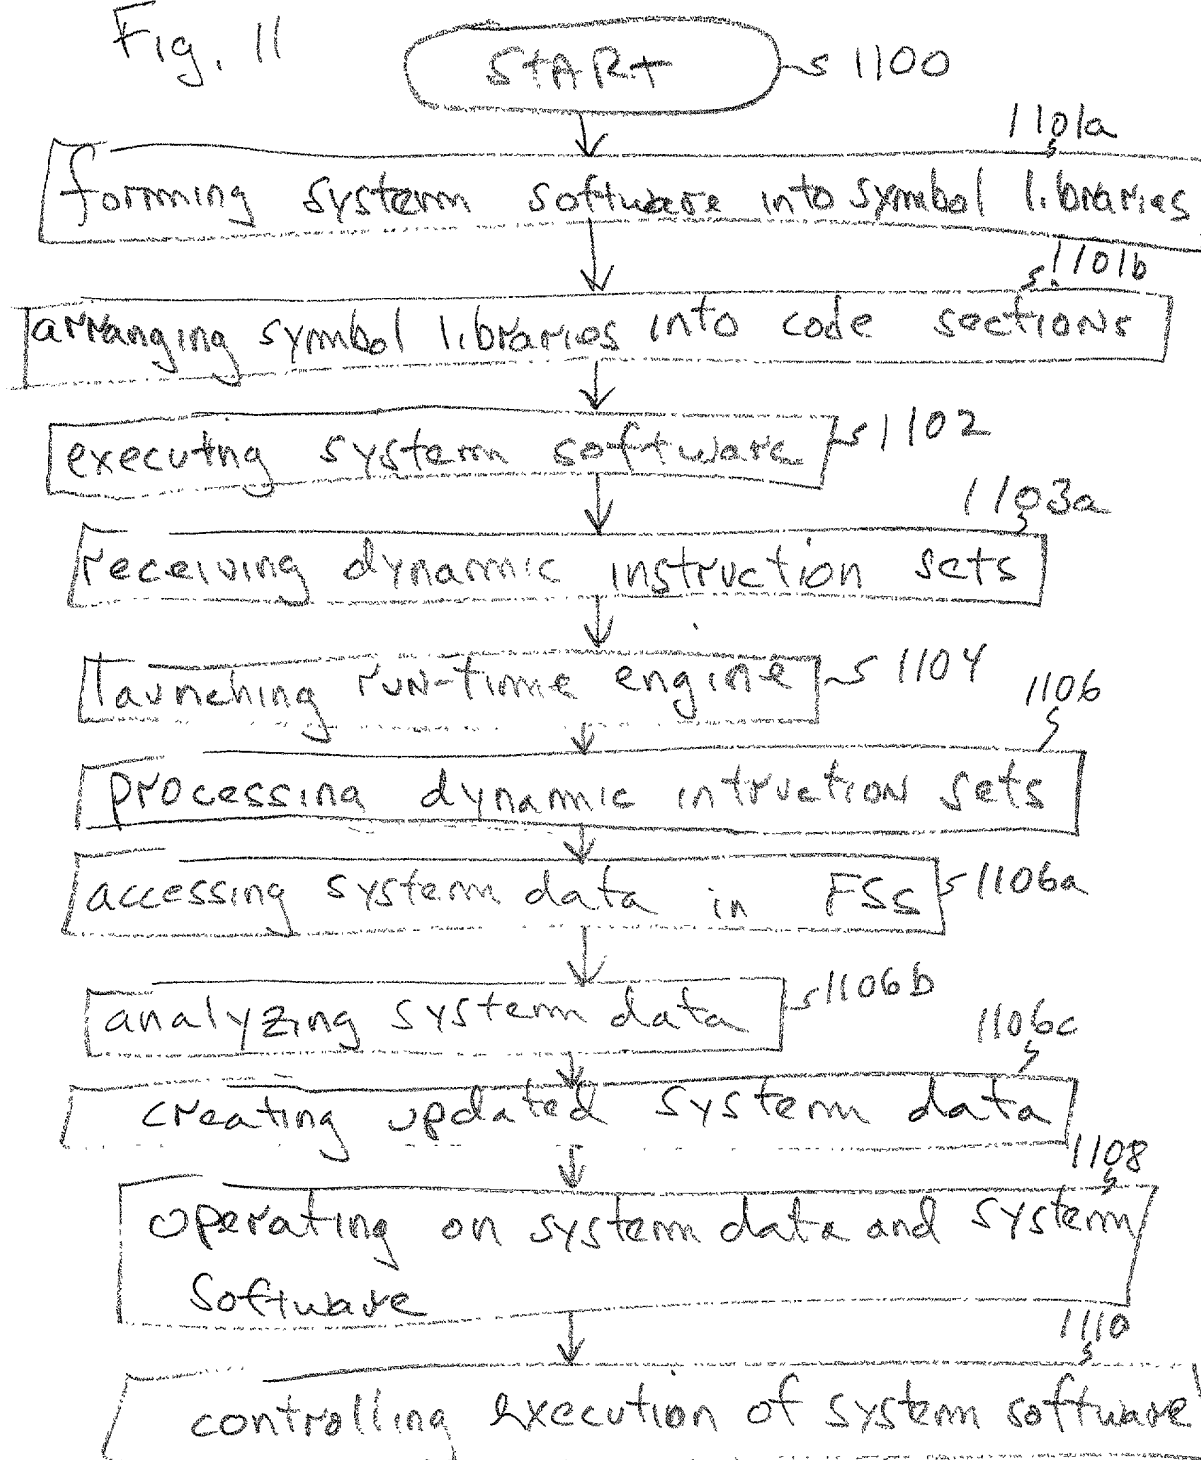 Fig. 11
START 1100
1101a
forming system software into symbol libraries
1101b
arranging symbol libraries into code sections
executng system software 1102
1103a
receiving dynamic instruction sets
launching run-time engine 1104
1106
processing dynamic intruction sets
accessing system data in FSs 1106a
analyzing system data 1106b
1106c
creating updated system data
1108
operating on system data and system
software
1110
controlling execution of system software